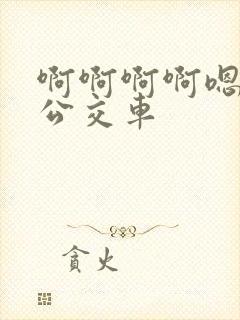 啊啊啊啊嗯
公交車
貪火